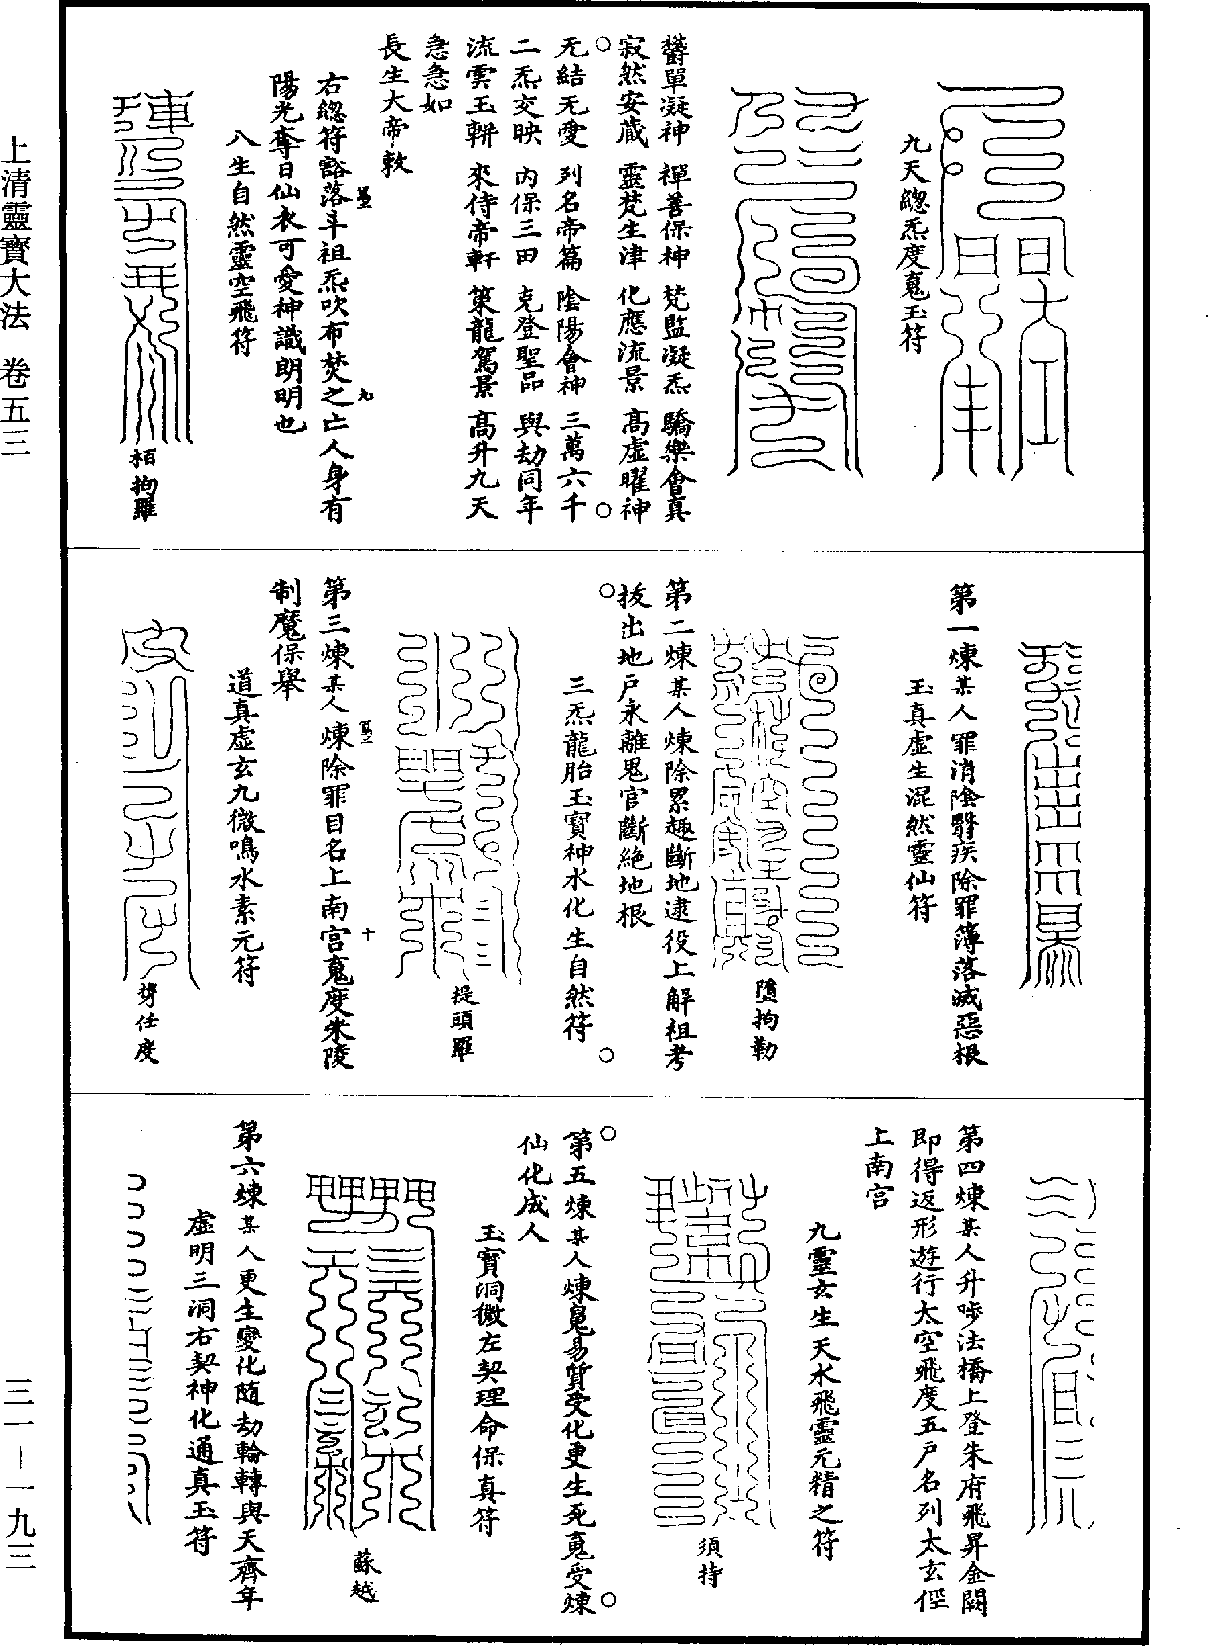 九天總炁度䰟玉符
欝單凝神　禪善保神　梵監凝炁　驕樂會真
寂然安藏　靈梵生津　化應流景　高虛曜神
无結无愛　列名帝篇　陰陽會神　三萬六千
二炁交映　內保三田　克登聖品　與劫同年
流雲玉軿　來侍帝軒　策龍駕景　高升九天
急急如
長生大帝敕
右總符豁落斗祖炁吹布焚之亡人身有
陽光奪日仙衣可愛神識朗明也
八生自然靈空飛符
栢拘羅
第一煉某人罪消陰翳疾除罪簿落滅惡根
玉真虛生混然靈仙符
墮拘勒
第二煉某人煉除累趣斷地逮役上解祖考
拔出地戶永離鬼官斷絕地根
三炁龍胎玉寶神水化生自然符
提頭羅
第三煉某人煉除罪目名上南宮䰟度朱陵
制魔保舉
道真虛玄九微鳴水素元符
兟任度
第四煉某人升唦法橋上登朱府飛昇金闕
即得返形遊行太空飛度五戶名列太玄徑
上南宮
九靈玄生天水飛靈元精之符
須持
第五煉某人煉䰟易質受化更生死䰟受煉
仙化成人
玉寶洞微左契理命保真符
蘇越
第六煉某人更生變化隨劫輪轉與天齊年
虛明三洞右契神化通真玉符
上清靈寶大法　卷五三
三一－一九三